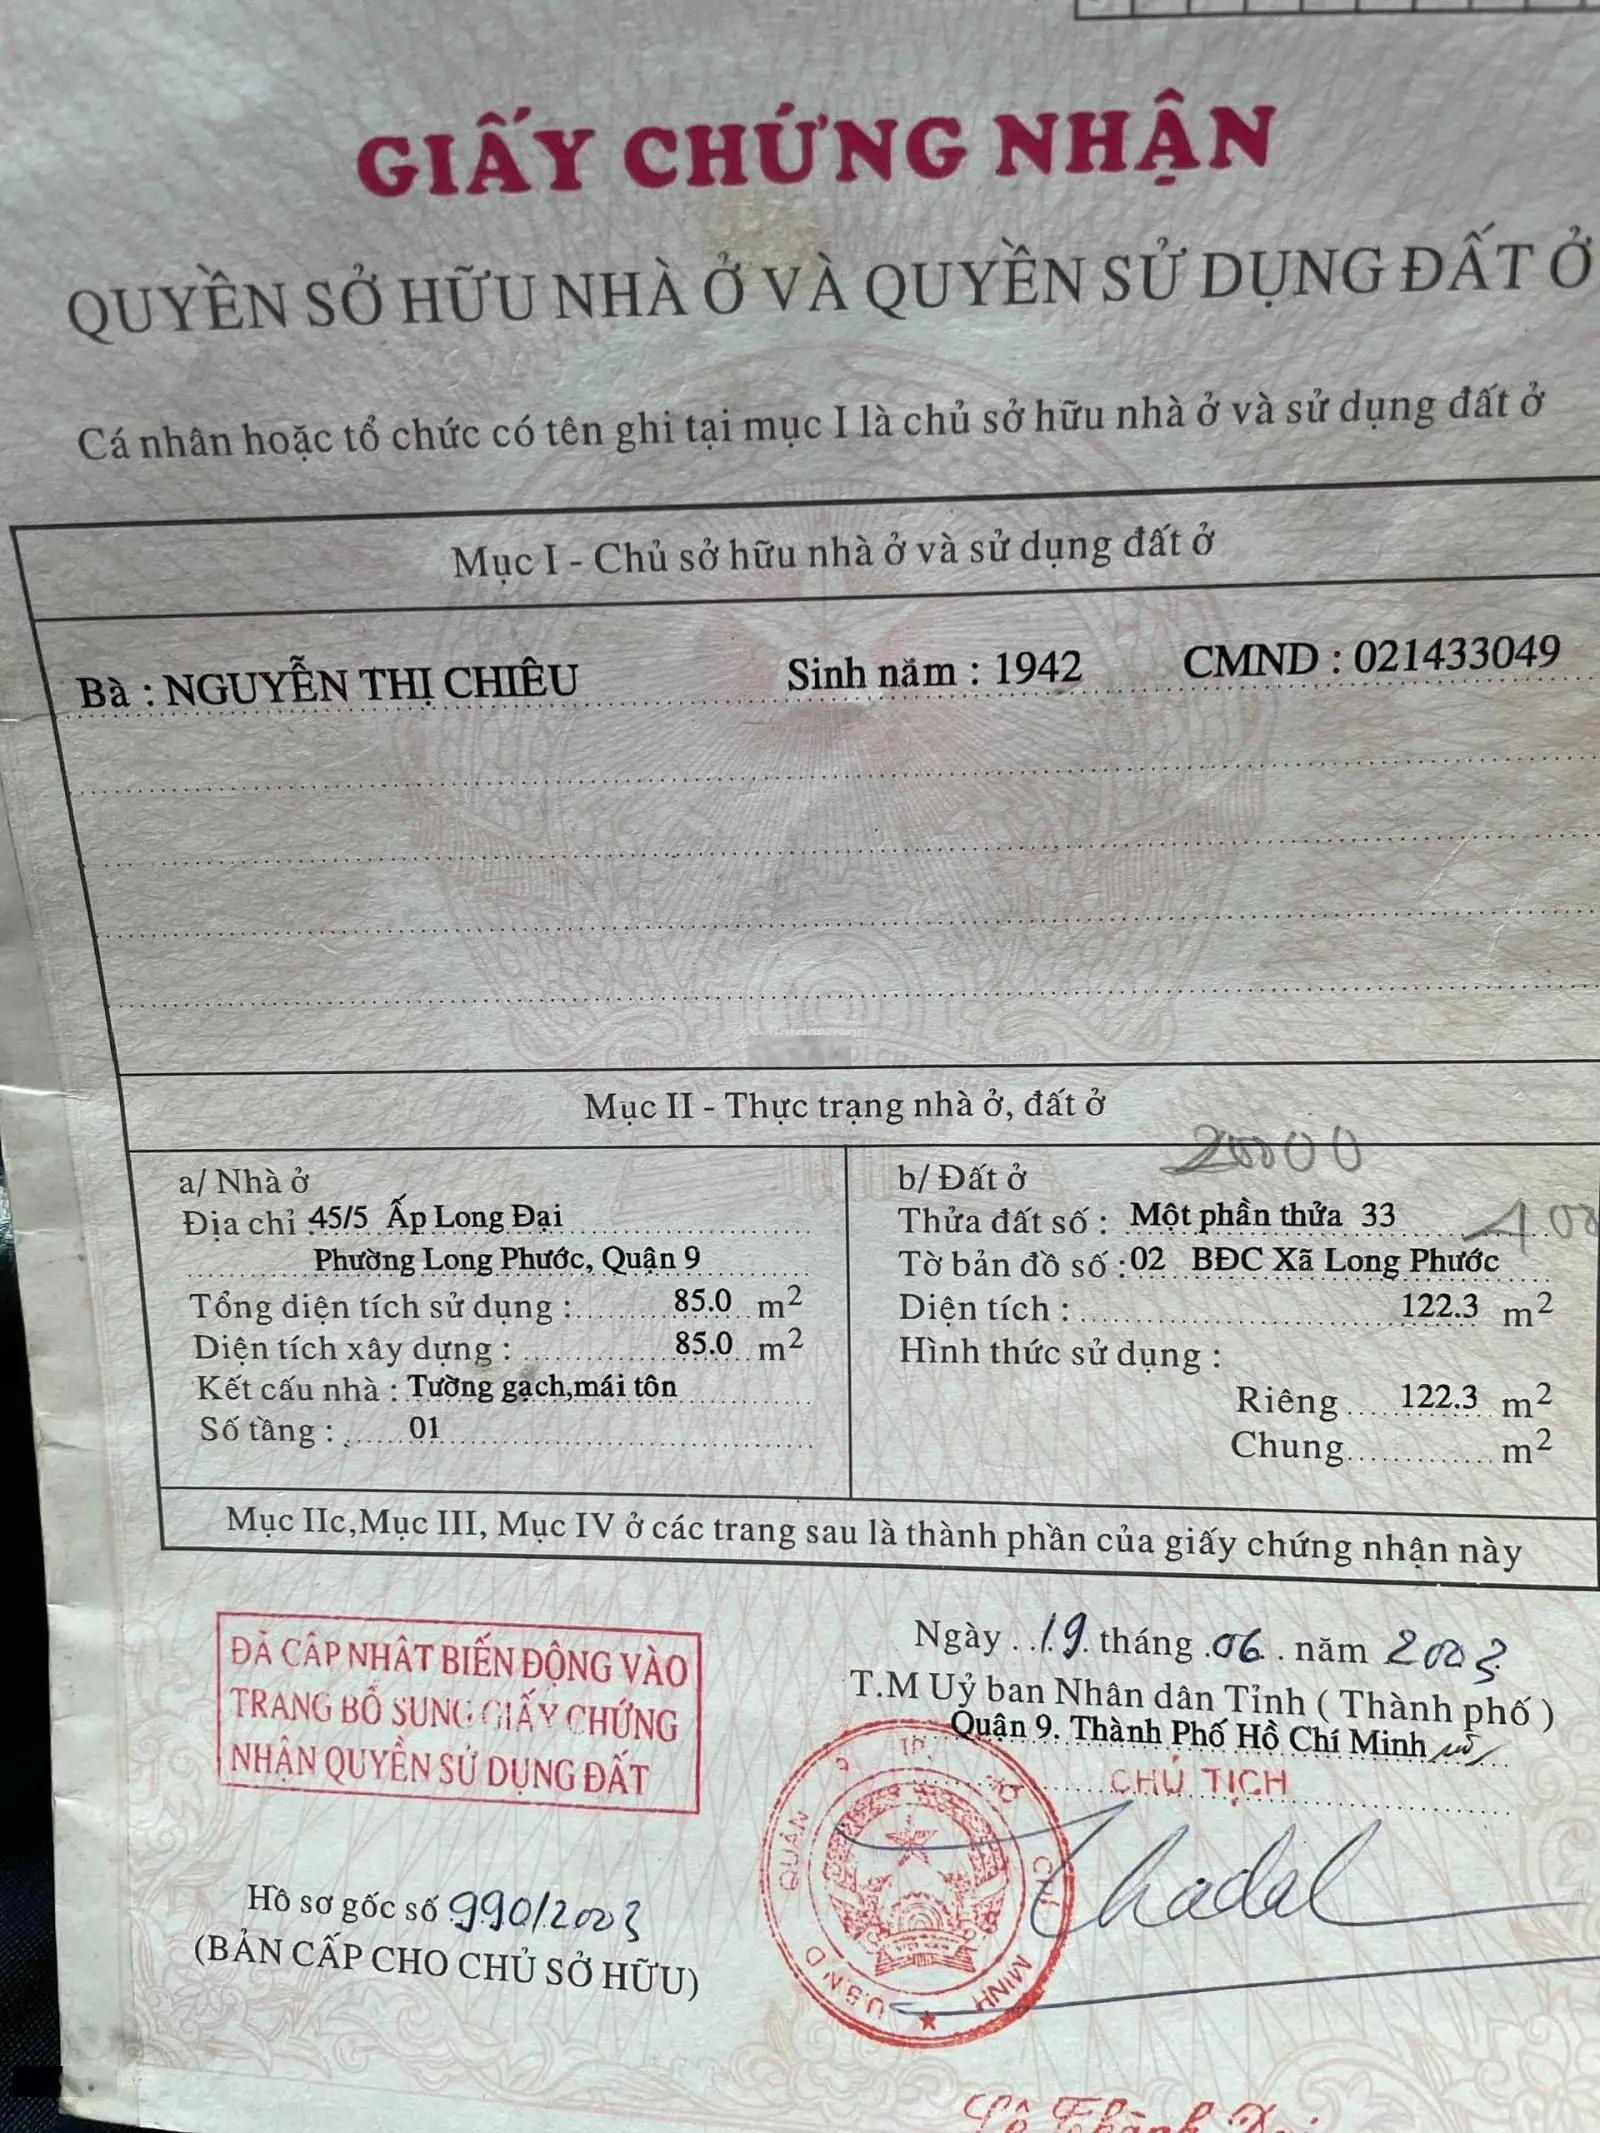 GIẤY CHỨNG NHẬN
QUYỀN SỞ HỮU NHÀ Ở VÀ QUYỀN SỬ DỤNG ĐẤT Ở
Cá nhân hoặc tổ chức có tên ghi tại mục I là chủ sở hữu nhà ở và sử dụng đất ở
Mục I - Chủ sở hữu nhà ở và sử dụng đất ở
Bà : NGUYỄN THỊ CHIÊU Sinh năm : 1942 CMND : 021433049
Mục II - Thực trạng nhà ở, đất ở
a/ Nhà ở
Địa chỉ 45/5 Ấp Long Đại
Phường Long Phước, Quận 9
Tổng diện tích sử dụng : 85.0 m2
Diện tích xây dựng : 85.0 m2
Kết cấu nhà : Tường gạch,mái tôn
Số tầng : 01
b/ Đất ở
Thửa đất số : Một phần thửa 33
Tờ bản đồ số : 02 BĐC Xã Long Phước
Diện tích : 122.3 m2
Hình thức sử dụng :
Riêng 122.3 m2
Chung m2
Mục IIc,Mục III, Mục IV ở các trang sau là thành phần của giấy chứng nhận này
ĐÃ CẬP NHẬT BIẾN ĐỘNG VÀO
TRANG BỔ SUNG GIẤY CHỨNG
NHẬN QUYỀN SỬ DỤNG ĐẤT
Hồ sơ gốc số 990/2003
(BẢN CẤP CHO CHỦ SỞ HỮU)
Ngày 19 tháng 06 năm 2003
T.M Uỷ ban Nhân dân Tỉnh ( Thành phố )
Quận 9. Thành Phố Hồ Chí Minh
CHỦ TỊCH
U.B.N.D QUẬN 9 TP. HỒ CHÍ MINH